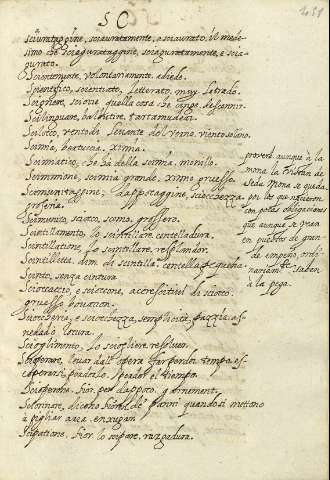 S C
sciurataggine, sciauratamente, e sciaurato, il mede-
simo che sciagurataggine, sciaguratamente, e scia-
gurato.
Scientemente, volontariamente, adrede.
Scientifico, scentiato, Letterato, muy Letrado.
Scignere, sciorre quella cosa che cinge, desceñir.
Scilinguare, balbutire, tartamudear.
Sciloco, vento di Levante del verno, viento solano.
Scimia, bertuccia, Ximia.
Scimiatico, che ha della scimia, monillo.
Scimmione, scimmia grande, ximio gruesso
Scimunitaggine, dappocaggine, sciocchezza,
groseria.
Scimunito, sciocco, scemo, grossero.
Scintillamento, lo scintillare, centelladura.
Scintillatione, lo scintillare, resplandor.
Scintilletta, dim. di scintilla, centella pequeña.
Scinto, sin cintura
Scioccaccio, e scioccone, accrescitivi di sciocco,
gruesso bovation.
Sciocheria, e sciochezza, semplicità, pazzia,
nedad, locura.
Scioglimento, lo sciogliere, resolver.
Scioperare, levar dall'opera, far perder tempo,
scioperarsi, perderlo, perder el tiempo.
Scioperone, fior. per dappoco,
Sciorinare, dicono fior. de' panni quando si mettono
a pigliar aria, enxugar.
Scipatione, fior. lo scipare, razgadura.
proverb. aunque à la
mona la vistan de
Seda Mona se queda,
por los que nacieron
con pocas obligaciones
que aunque se vean
en puestos de gran-
de empeño, ordi-
nariamte. saben
à la pega.